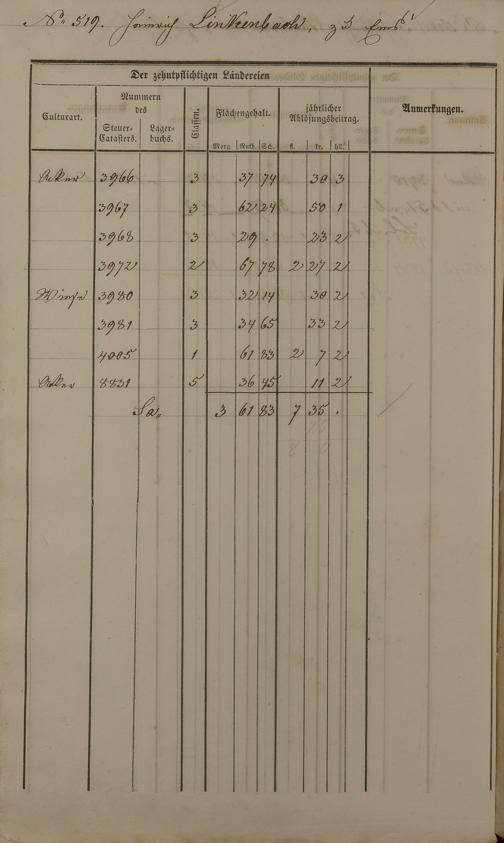 No. 519. Heinrich Linkenbach, zu Ems
Der zehntpflichtigen Ländereien
Culturart. Nummern des Classen. Flächengehalt. jährlicher Ablösungsbeitrag. Anmerkungen.
Steuer-Catasters. Lager-buchs.
Morg Ruth. Sch. fl. kr. hll.
Acker 3966 3 37 74 30 3
3967 3 62 24 50 1
3968 3 29 . 23 2
3972 2 67 78 2 27 2
Wiese 3980 3 32 14 30 2
3981 3 34 65 33 2
4005 1 61 83 2 7 2
Acker 8831 5 36 45 11 2
Sa. 3 61 83 7 35 .